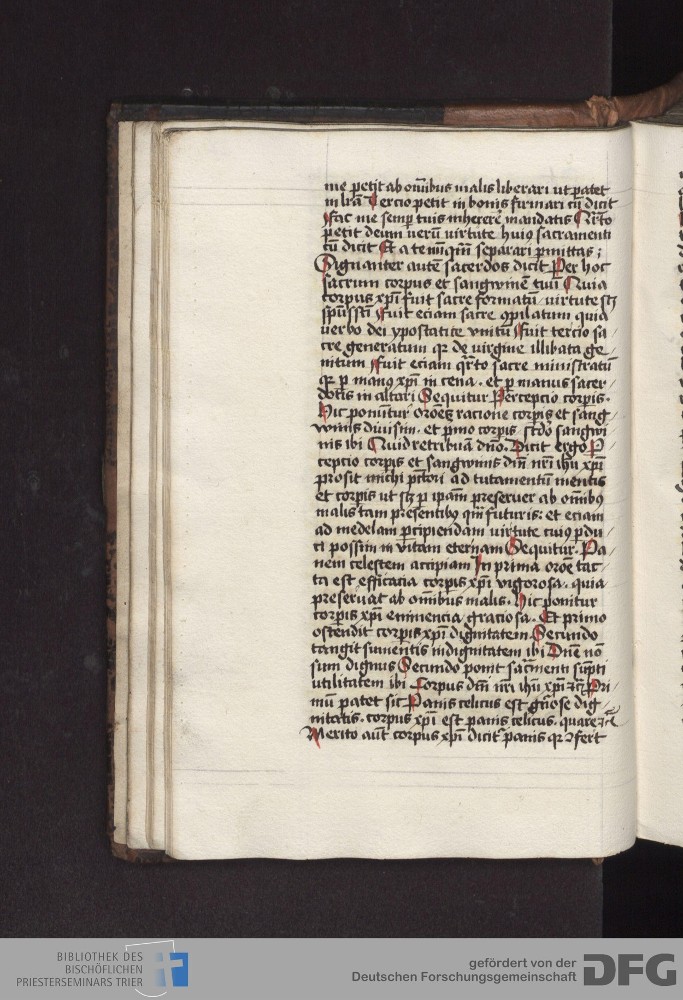 me petit ab oīnibus malis liberari ut patet
in lrā Tercio petit in bonis firmari cū dicit
Fac me semp tuis inherere mandatis Qrto
petit deum verū virtute huiꝰ sacramenti
cū dicit Et a te nūqm̄ separari pmittas ;
Signanter autē sacerdos dicit Per hoc
sacrum corpus et sangwinē tuū Quia
corpus xpī fuit sacre formatū virtute sꝫ
spūssctī Fuit eciam sacre ꝯpilatum quia
verbo dei ypostatice vnitū Fuit tercio sa
cre generatum qꝛ de virgine illibata ge
nitum Fuit eciam qrto sacre ministratū
qꝛ p manꝰ xpī in cena . et p manus sacer
dotis in altari Sequitur Percepcio corpis .
Hic ponuntur orōnes racione corpis et sang
winis divisim . et pmo corpis scdo sangwi
nis ibi Quid retribuā dno . Dicit ergo P
cepcio corpis et sangwinis dnī nrī ihū xpī
prosit michi pctori ad tutamentū mentis
et corpis ut sꝫ p ipam preserver ab oīnibꝰ
malis tam presentibꝰ qm̄ futuris : et eciam
ad medelam pcipiendam virtute cuiꝰ pdu
ci possim in vitam eternam Sequitur . Pa
nem celestem accipiam In prima orōne tac
ta est efficacia corpis xpī vigorosa . quia
preservat ab omnibus malis . Hic ponitur
corpis xpī eminencia graciosa . Et primo
ostendit corpis xpī dignitatem . Secundo
tangit sumentis indignitatem ibi Dne nō
sum dignus Secundo ponit sacmenti supti
utilitatem ibi Corpus dnī nrī ihū xpī ⁊c̄ Pri
mū patet sic Panis celicus est gnōse dig
nitatis . corpus xpī est panis celicus . quare ⁊c̄
Merito aūt corpus xpī dicit panis qꝛ ꝯfert
BIBLIOTHEK DES
BISCHÖFLICHEN
PRIESTERSEMINARS TRIER
gefördert von der
Deutschen Forschungsgemeinschaft
DFG